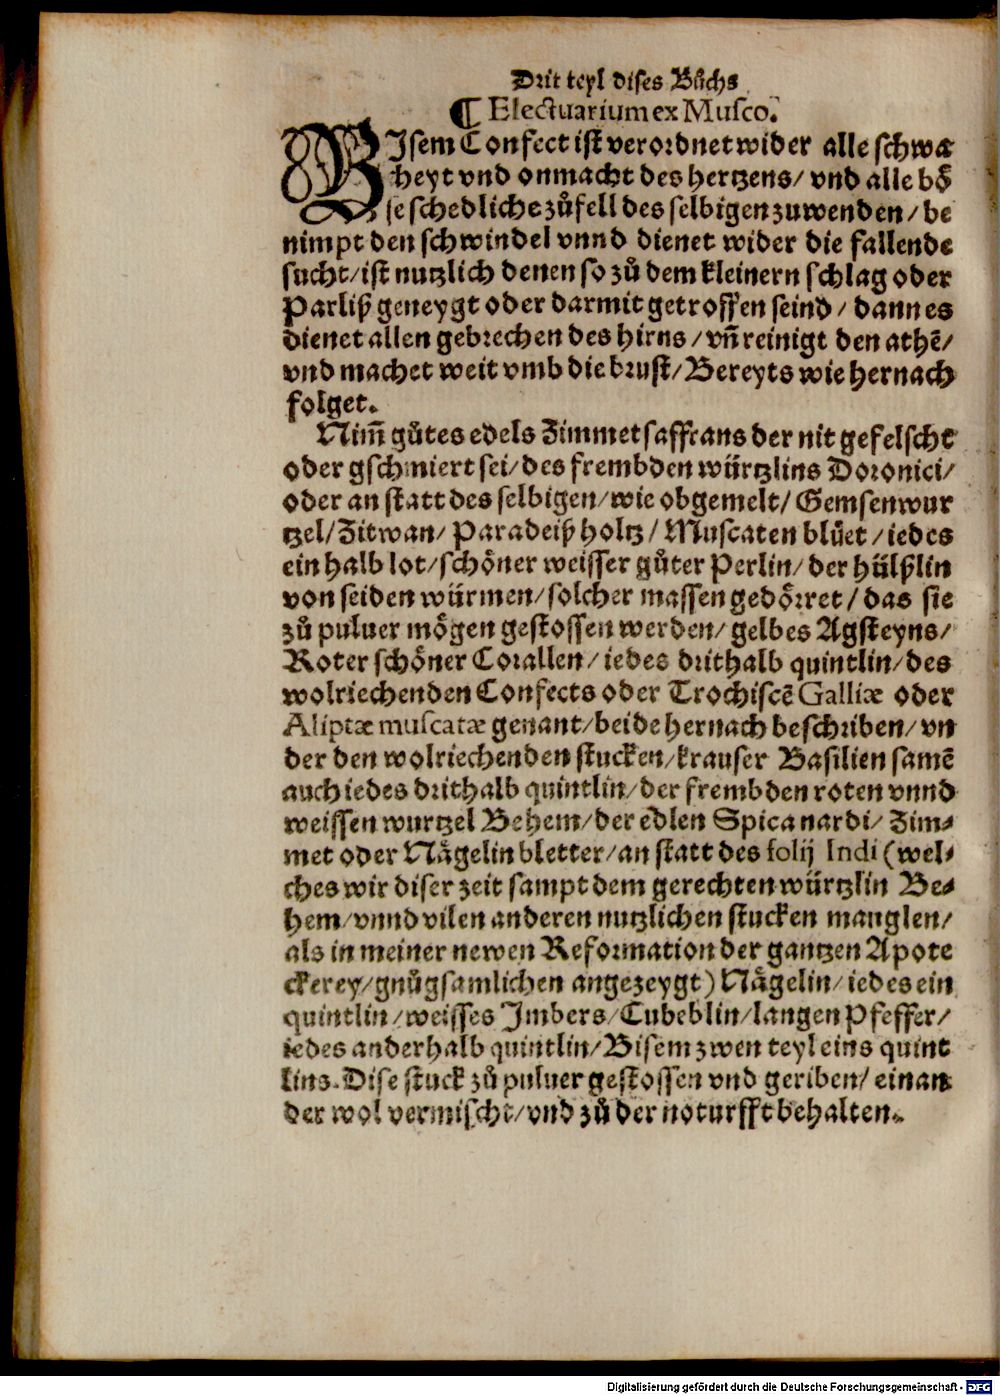 Drit teyl dises Bůchs
¶ Electuarium ex Musco.
BIsem Confect ist verordnet wider alle schwa
cheyt vnd onmacht des hertzens/ vnd alle bȯ
se schedliche zůfell des selbigen zuwenden/ be
nimpt den schwindel vnnd dienet wider die fallende
sucht/ ist nutzlich denen so zů dem kleinern schlag oder
Parliß geneygt oder darmit getroffen seind/ dann es
dienet allen gebrechen des hirns/ vn̄ reinigt den athē/
vnd machet weit vmb die brust/ Bereyts wie hernach
folget.
Nim̄ gůtes edels Zimmetsaffrans der nit gefelscht
oder gschmiert sei/ des frembden würtzlins Doronici/
oder an statt des selbigen/ wie obgemelt/ Gemsenwur
tzel/ Zitwan/ Paradeiß holtz/ Muscaten blůet/ iedes
ein halb lot/ schöner weisser gůter Perlin/ der hülßlin
von seiden würmen/ solcher massen gedörret/ das sie
zů puluer mögen gestossen werden/ gelbes Agsteyns/
Roter schöner Corallen/ iedes drithalb quintlin/ des
wolriechenden Confects oder Trochiscē Galliæ oder
Aliptæ muscatæ genant/ beide hernach beschriben/ vn
der den wolriechenden stucken/ krauser Basilien samē
auch iedes drithalb quintlin/ der frembden roten vnnd
weissen wurtzel Behem/ der edlen Spica nardi/ Zim⸗
met oder Nägelin bletter/ an statt des folij Indi (wel⸗
ches wir diser zeit sampt dem gerechten würtzlin Be⸗
hem/ vnnd vilen anderen nutzlichen stucken manglen/
als in meiner newen Reformation der gantzen Apote
ckerey/ gnůgsamlichen angezeygt) Nägelin/ iedes ein
quintlin/ weisses Imbers/ Cubeblin/ langen Pfeffer/
iedes anderhalb quintlin/ Bisem zwen teyl eins quint
lins. Dise stuck zů puluer gestossen vnd geriben/ einan
der wol vermischt/ vnd zů der noturfft behalten.
Digitalisierung gefördert durch die Deutsche Forschungsgemeinschaft - DFG